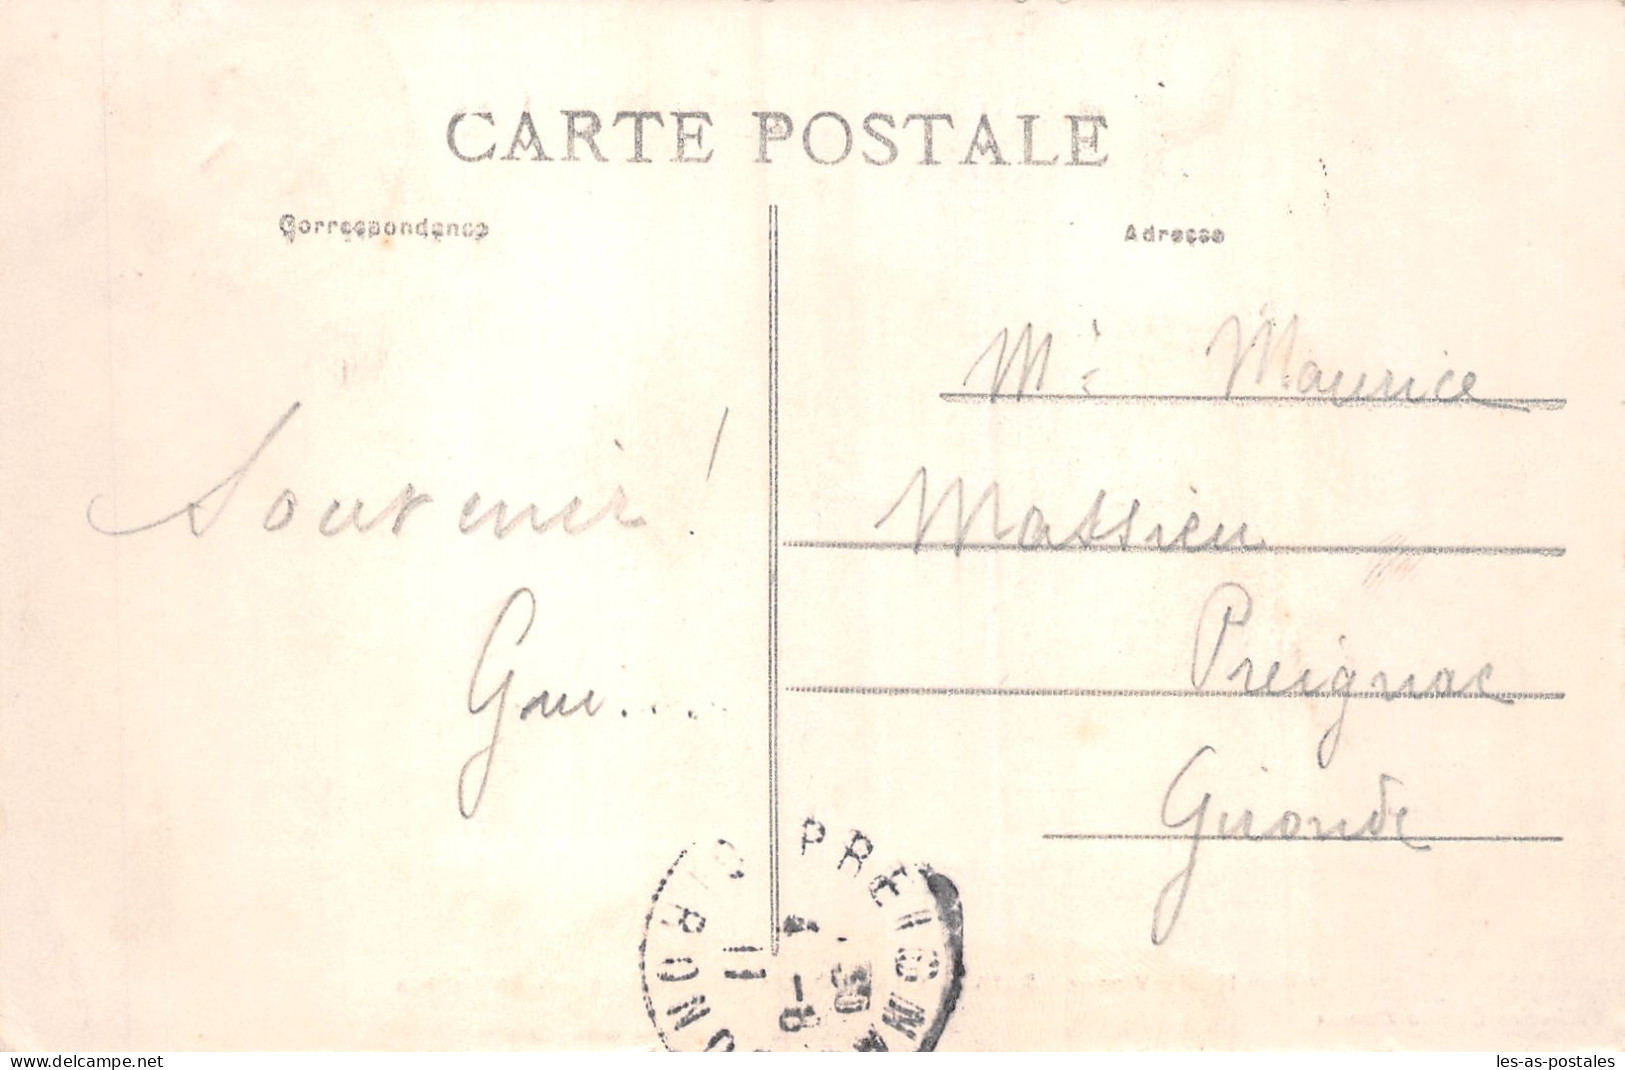 CARTE POSTALE
Correspondance
Adresse
Souvenir !
Gui...
Mr Maurice
Massieu
Preignac
Gironde
PREIGNA
GIRON
11
30
www.delcampe.net
les-as-postales